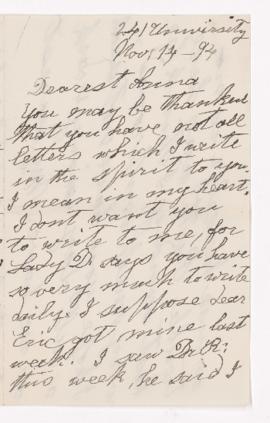 241 University
Nov 14 - 94
Dearest Anna
You may be thankful
that you have not all
letters which I write
in the spirit to you
I mean in my heart.
I dont want you
to write to me, for
Lady D. says you have
so very much to write
daily. I suppose dear
Eric got mine last
week. I saw Dr R:
this week, he said I